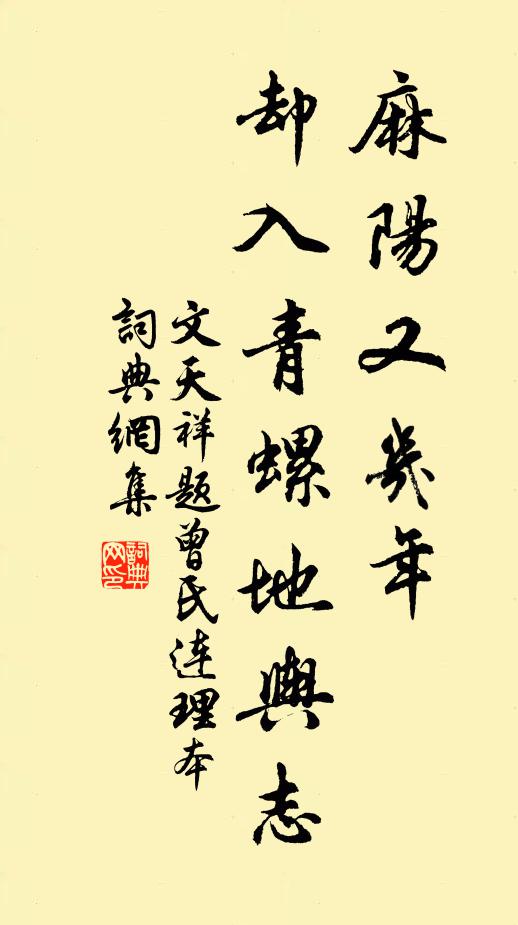 麻陽又幾年
却入青螺地輿志
文天祥题曾氏連理本
詞典網集
詞典網印